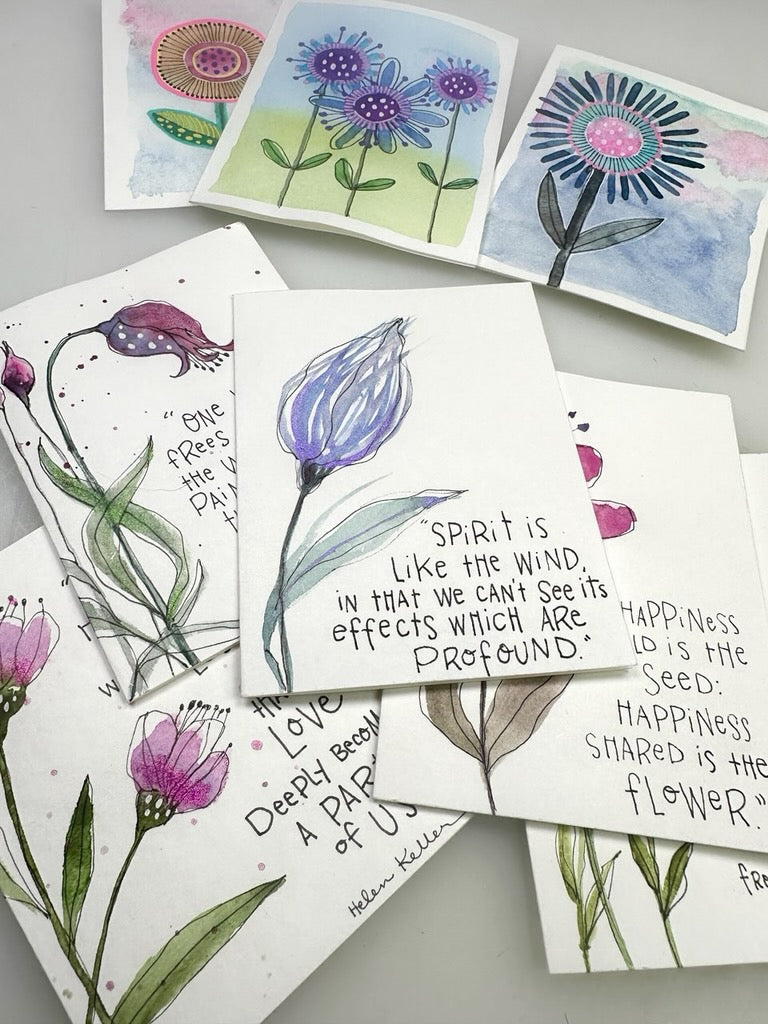 "ONE
fREES
the
PAIN
"SPiRit is
LiKE tHE WiND,
iN tHAt WE CAN't SEE itS
EffECtS WHiCH ARE
PROfOUND."
HAPPiNESS
iS tHE
SEED:
HAPPiNESS
SHARED iS tHE
fLOWER."
LOVE
DEEPLY BECOM
A PAR
of US
Helen Keller
fRO